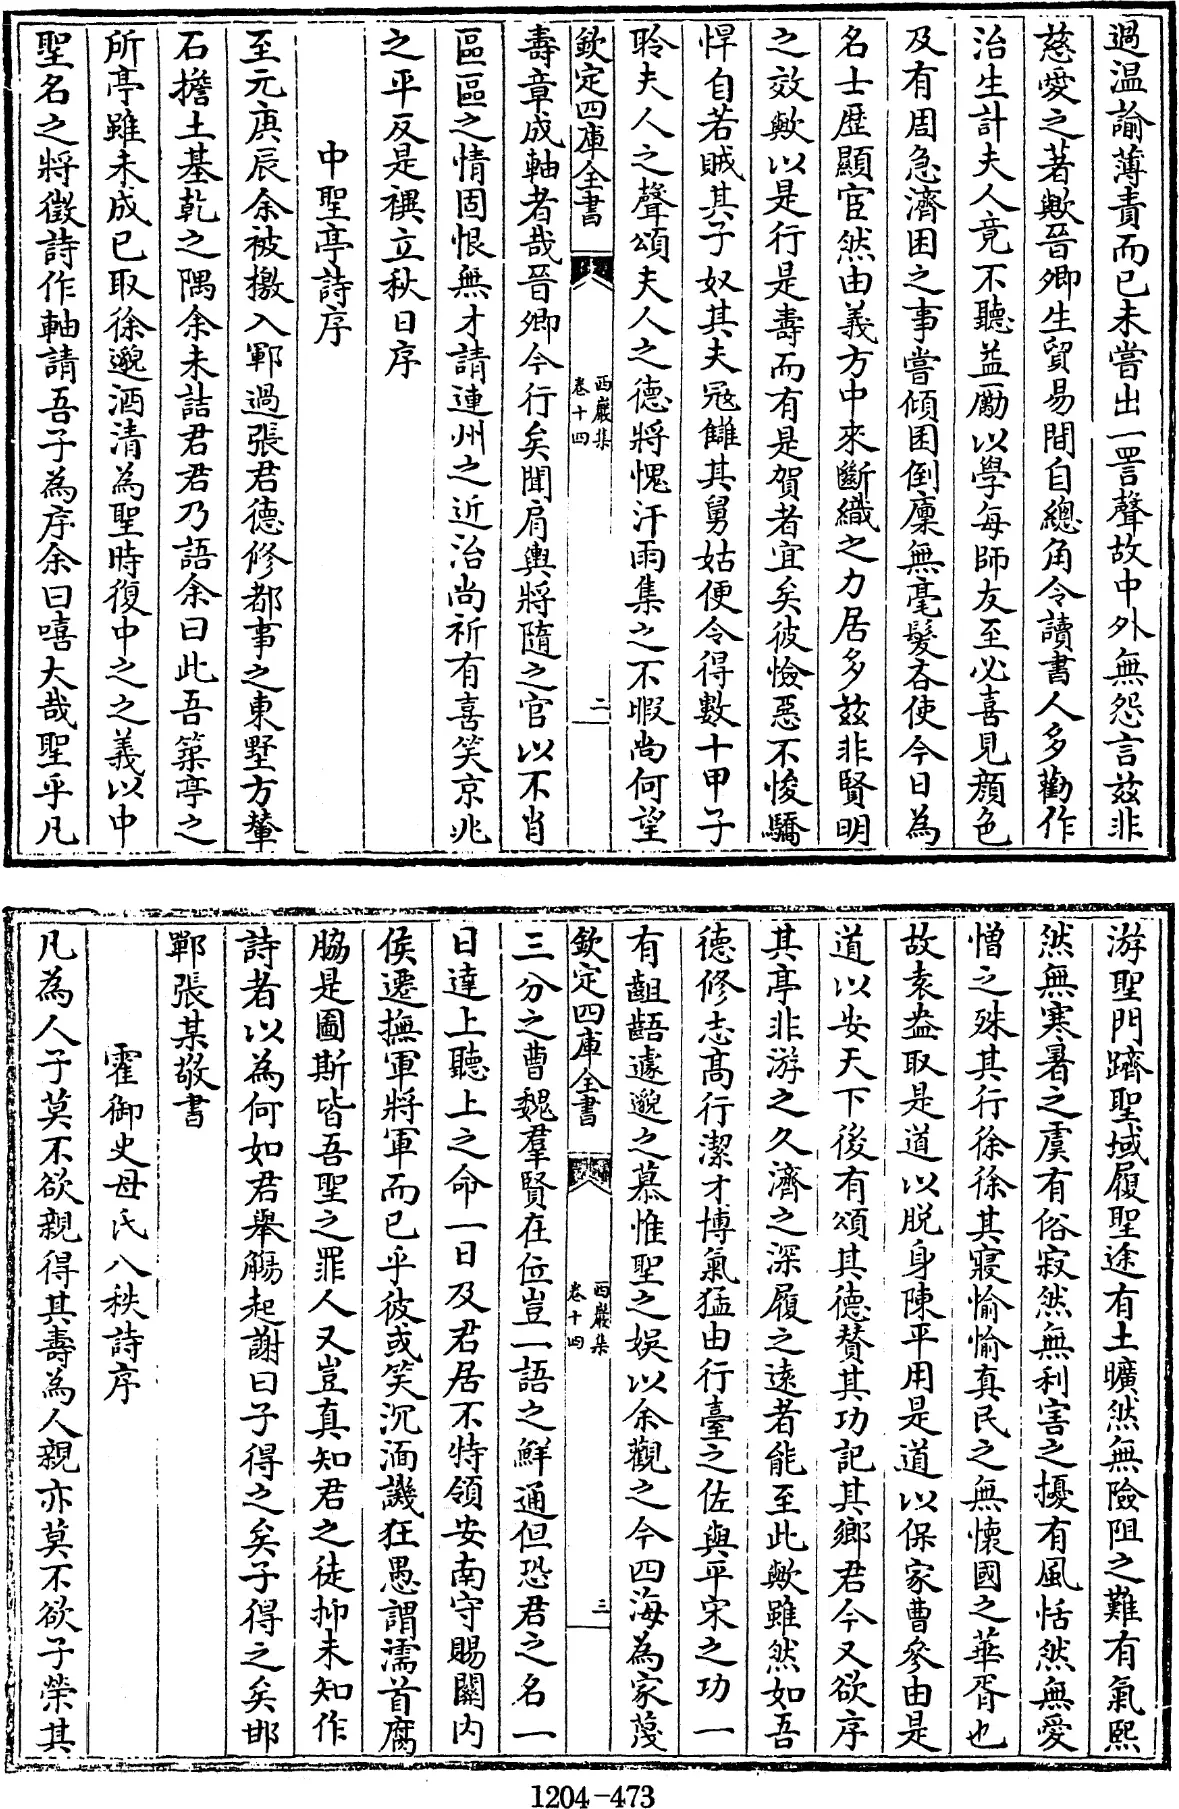 過温諭薄責而已未嘗出一詈聲故中外無怨言兹非
慈愛之著歟晉卿生貿易間自總角令讀書人多勸作
治生計夫人竟不聽益勵以學每師友至必喜見顔色
及有周急濟困之事嘗傾囷倒廩無毫髮吝使今日為
名士歴顯宦然由義方中來斷織之力居多兹非賢明
之效歟以是行是壽而有是賀者宜矣彼憸惡不悛驕
悍自若賊其子奴其夫冦讎其舅姑便令得數十甲子
聆夫人之聲頌夫人之德將愧汗雨集之不暇尚何望
欽定四庫全書
西巖集
卷十四
二
壽章成軸者哉晉卿今行矣聞肩輿將隨之官以不肖
區區之情固恨無才請連州之近治尚祈有喜笑京兆
之平反是禩立秋日序
中聖亭詩序
至元庚辰余被檄入鄆過張君德修都事之東墅方輦
石擔土基乾之隅余未詰君君乃語余曰此吾築亭之
所亭雖未成已取徐邈酒清為聖時復中之之義以中
聖名之將徵詩作軸請吾子為序余曰嘻大哉聖乎凡
游聖門躋聖域履聖途有土曠然無險阻之難有氣熙
然無寒暑之虞有俗寂然無利害之擾有風恬然無愛
憎之殊其行徐徐其寢愉愉真民之無懷國之華胥也
故袁盎取是道以脱身陳平用是道以保家曹參由是
道以安天下後有頌其德賛其功記其鄉君今又欲序
其亭非游之久濟之深履之逺者能至此歟雖然如吾
德修志高行潔才博氣猛由行臺之佐與平宋之功一
有齟齬遽邈之慕惟聖之娱以余觀之今四海為家蔑
欽定四庫全書
西巖集
卷十四
三
三分之曹魏羣賢在位豈一語之鮮通但恐君之名一
日達上聽上之命一日及君居不特領安南守賜關内
侯遷撫軍將軍而已乎彼或笑沉湎譏狂愚謂濡首腐
脇是圖斯皆吾聖之罪人又豈真知君之徒抑未知作
詩者以為何如君舉觴起謝曰子得之矣子得之矣邯
鄲張某敬書
霍御史母氏八秩詩序
凡為人子莫不欲親得其壽為人親亦莫不欲子榮其
1204-473